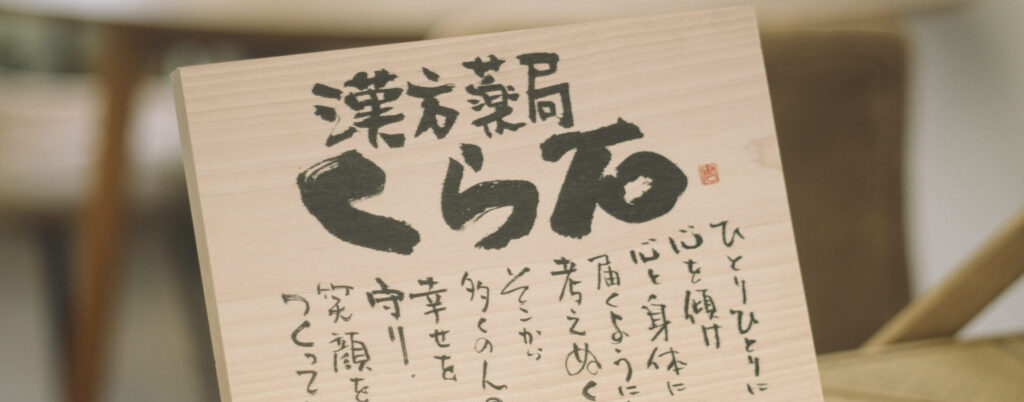 漢方薬局
くら石
ひとりひとりに
心を傾け
心と身体に
届くように
考えぬく
そこから
多くの人の
幸せを
守り.
笑顔を
つくって